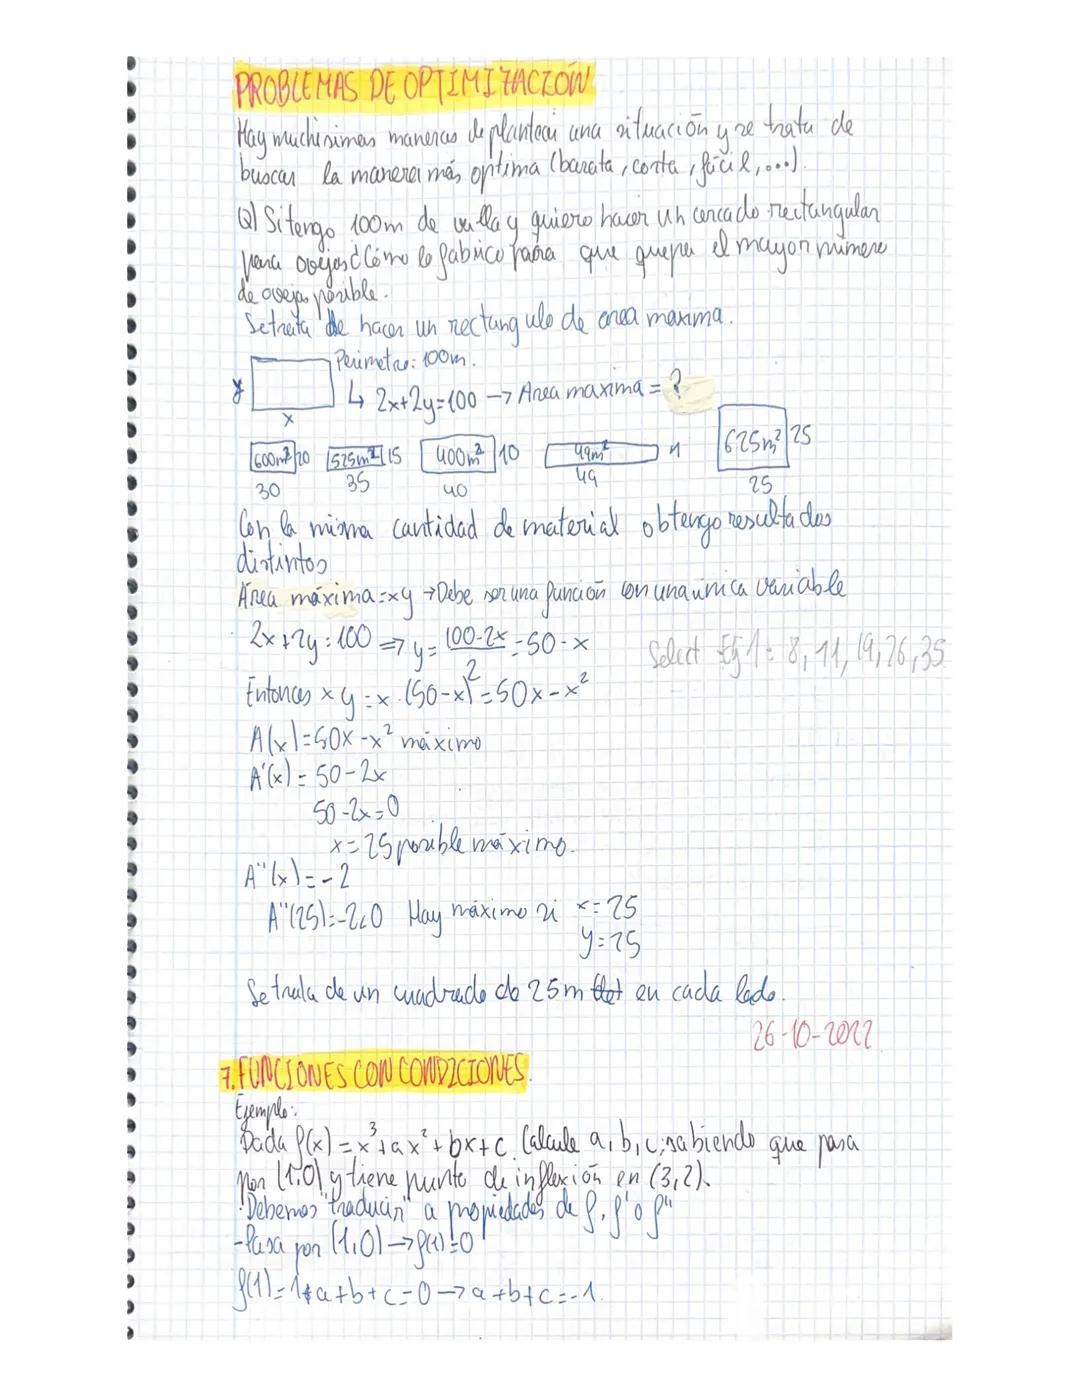 PROBLEMAS DE OPTIMIZACIÓN
Hay muchisimas maneras de plantear una situación y se trata de
buscar la manera más optima (barata, corta, fácil,...).
Q) Si tengo 100m de valla y quiero hacer un cercado rectangular
para ovejas ¿Cómo lo fabrico para que quepa el mayor número
de ovejas posible.
Se trata de hacer un rectangulo de area maxima.
Perimetro: 100m.
y
↳ 2x+2y=100 → Area maxima = ?
x
600m² 20 525m² 15 400m² 10 49m² 1 625m² 25
30 35 40 49 25
Con la misma cantidad de material obtengo resultados
distintos
Área máxima=xy → Debe ser una función con una unica variable
2x+2y=100 ⇒ y= (100-2x)/2 =50-x
Select Ej 1: 8, 11, 19, 26, 35
Entonces xy=x·(50-x)=50x-x²
A(x)=50x-x² máximo
A'(x)=50-2x
50-2x=0
x=25 posible máximo.
A''(x)=-2
A''(25)=-2<0 Hay máximo si x=25
y=25
Se trata de un cuadrado de 25m en cada lado.
26-10-2022
7. FUNCIONES CON CONDICIONES.
Ejemplo:
Dada f(x)=x³+ax²+bx+c. Calcule a, b, c; sabiendo que pasa
por (1,0) y tiene punto de inflexión en (3,2).
·Debemos "traducir" a propiedades de f, f' o f''
-Pasa por (1,0) → f(1)=0
f(1)=1+a+b+c=0 → a+b+c=-1.